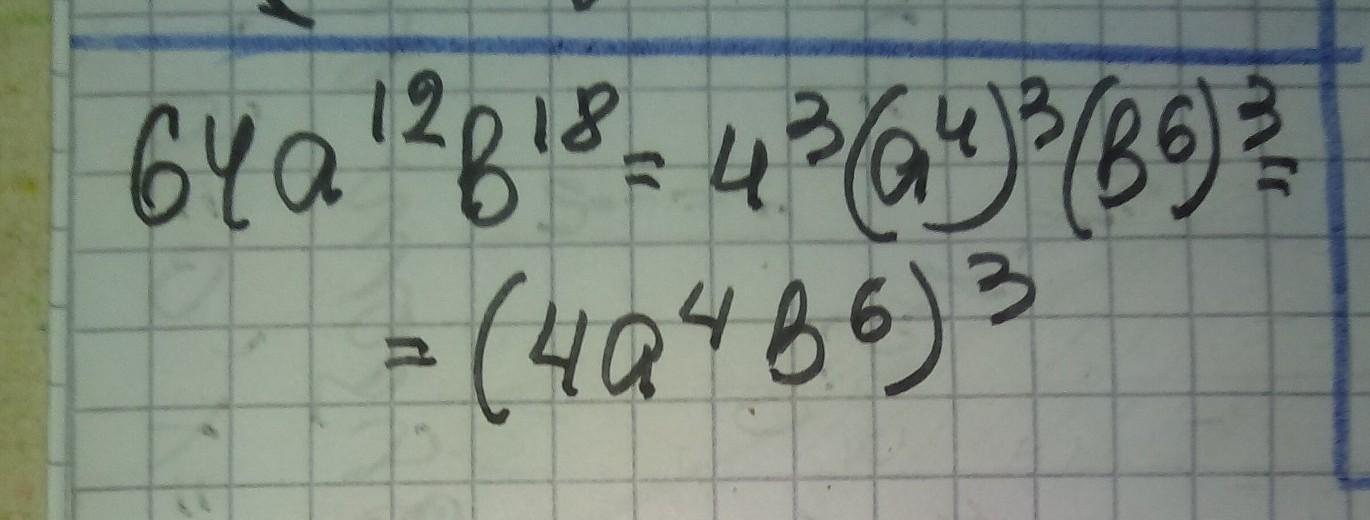 64a¹²b¹⁸ = 4³(a⁴)³(b⁶)³ =
= (4a⁴b⁶)³